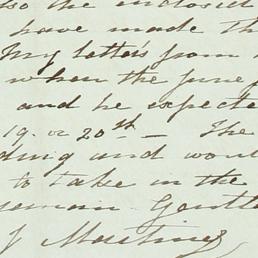 so the enclosed
have made th
My letters from
when the June
and he expecte
19. or 20th — The
ding and woul
to take in the
remain Gentle
J Mastiny